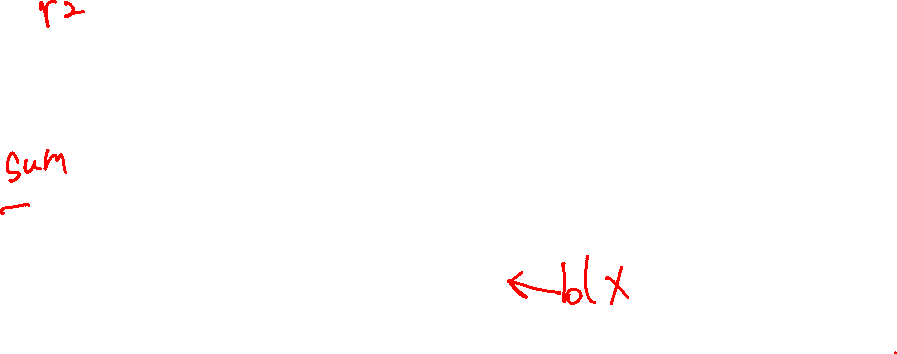 r2
sum
← blx